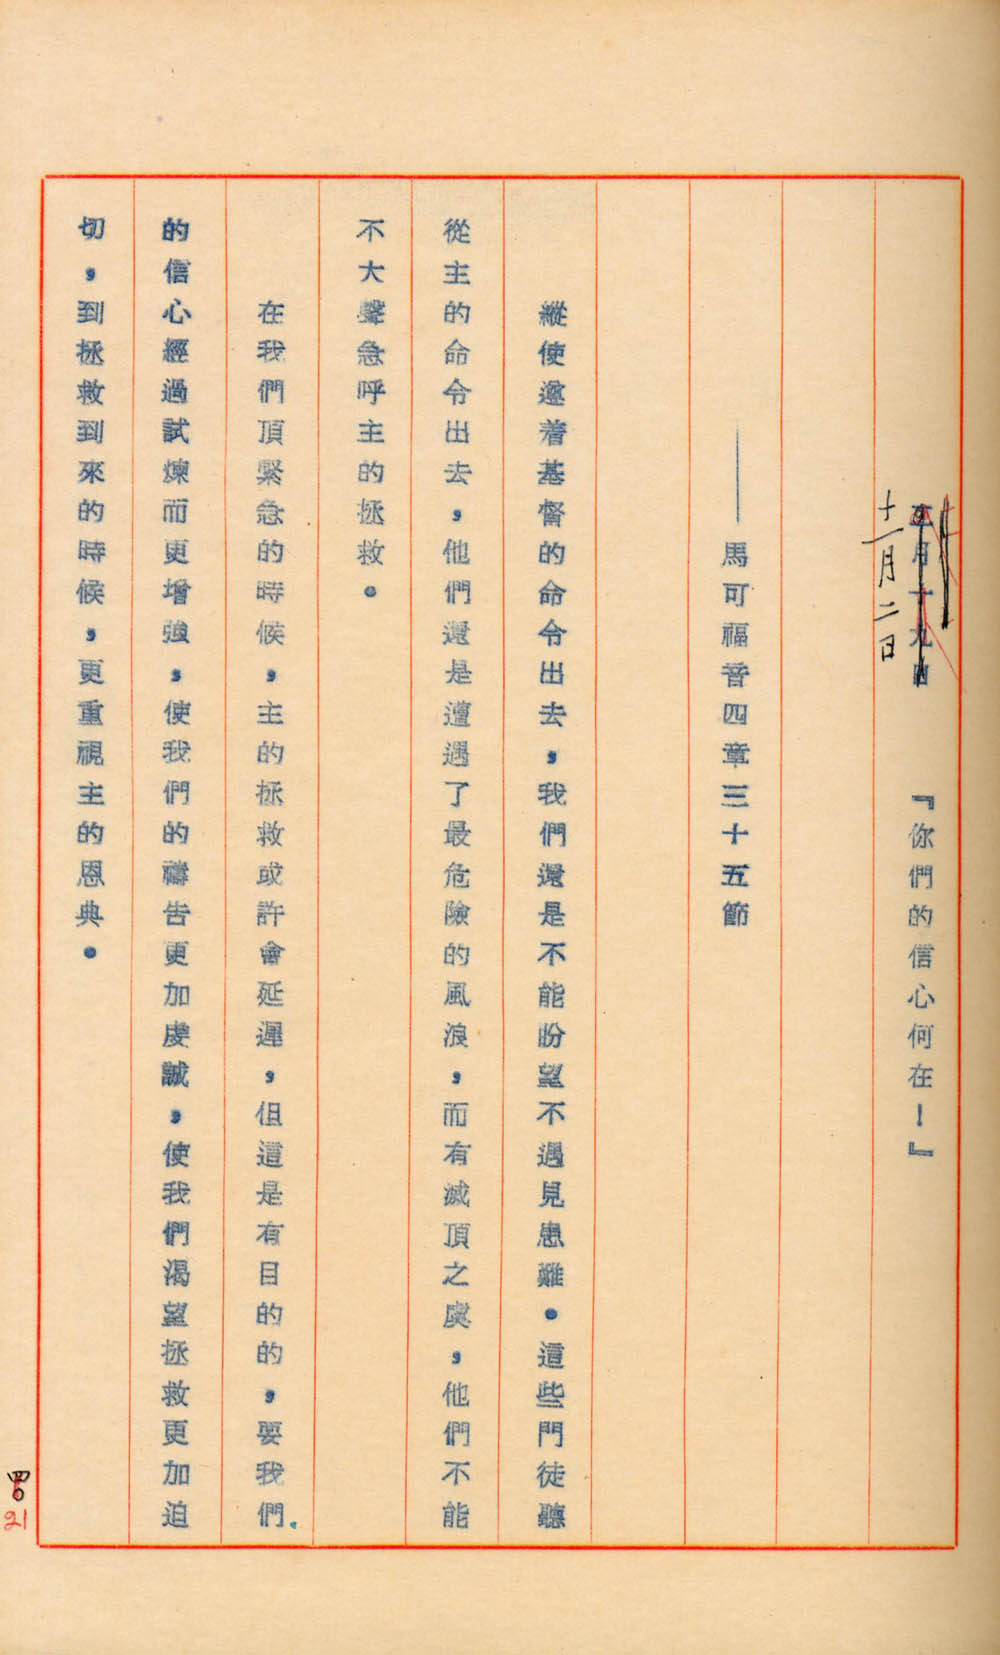 十一月二日
『你們的信心何在！』
——馬可福音四章三十五節
縱使遵着基督的命令出去，我們還是不能盼望不遇見患難。這些門徒聽
從主的命令出去，他們還是遭遇了最危險的風浪，而有滅頂之虞，他們不能
不大聲急呼主的拯救。
在我們頂緊急的時候，主的拯救或許會延遲，但這是有目的的，要我們
的信心經過試煉而更增強，使我們的禱告更加虔誠，使我們渴望拯救更加迫
切，到拯救到來的時候，更重視主的恩典。
21